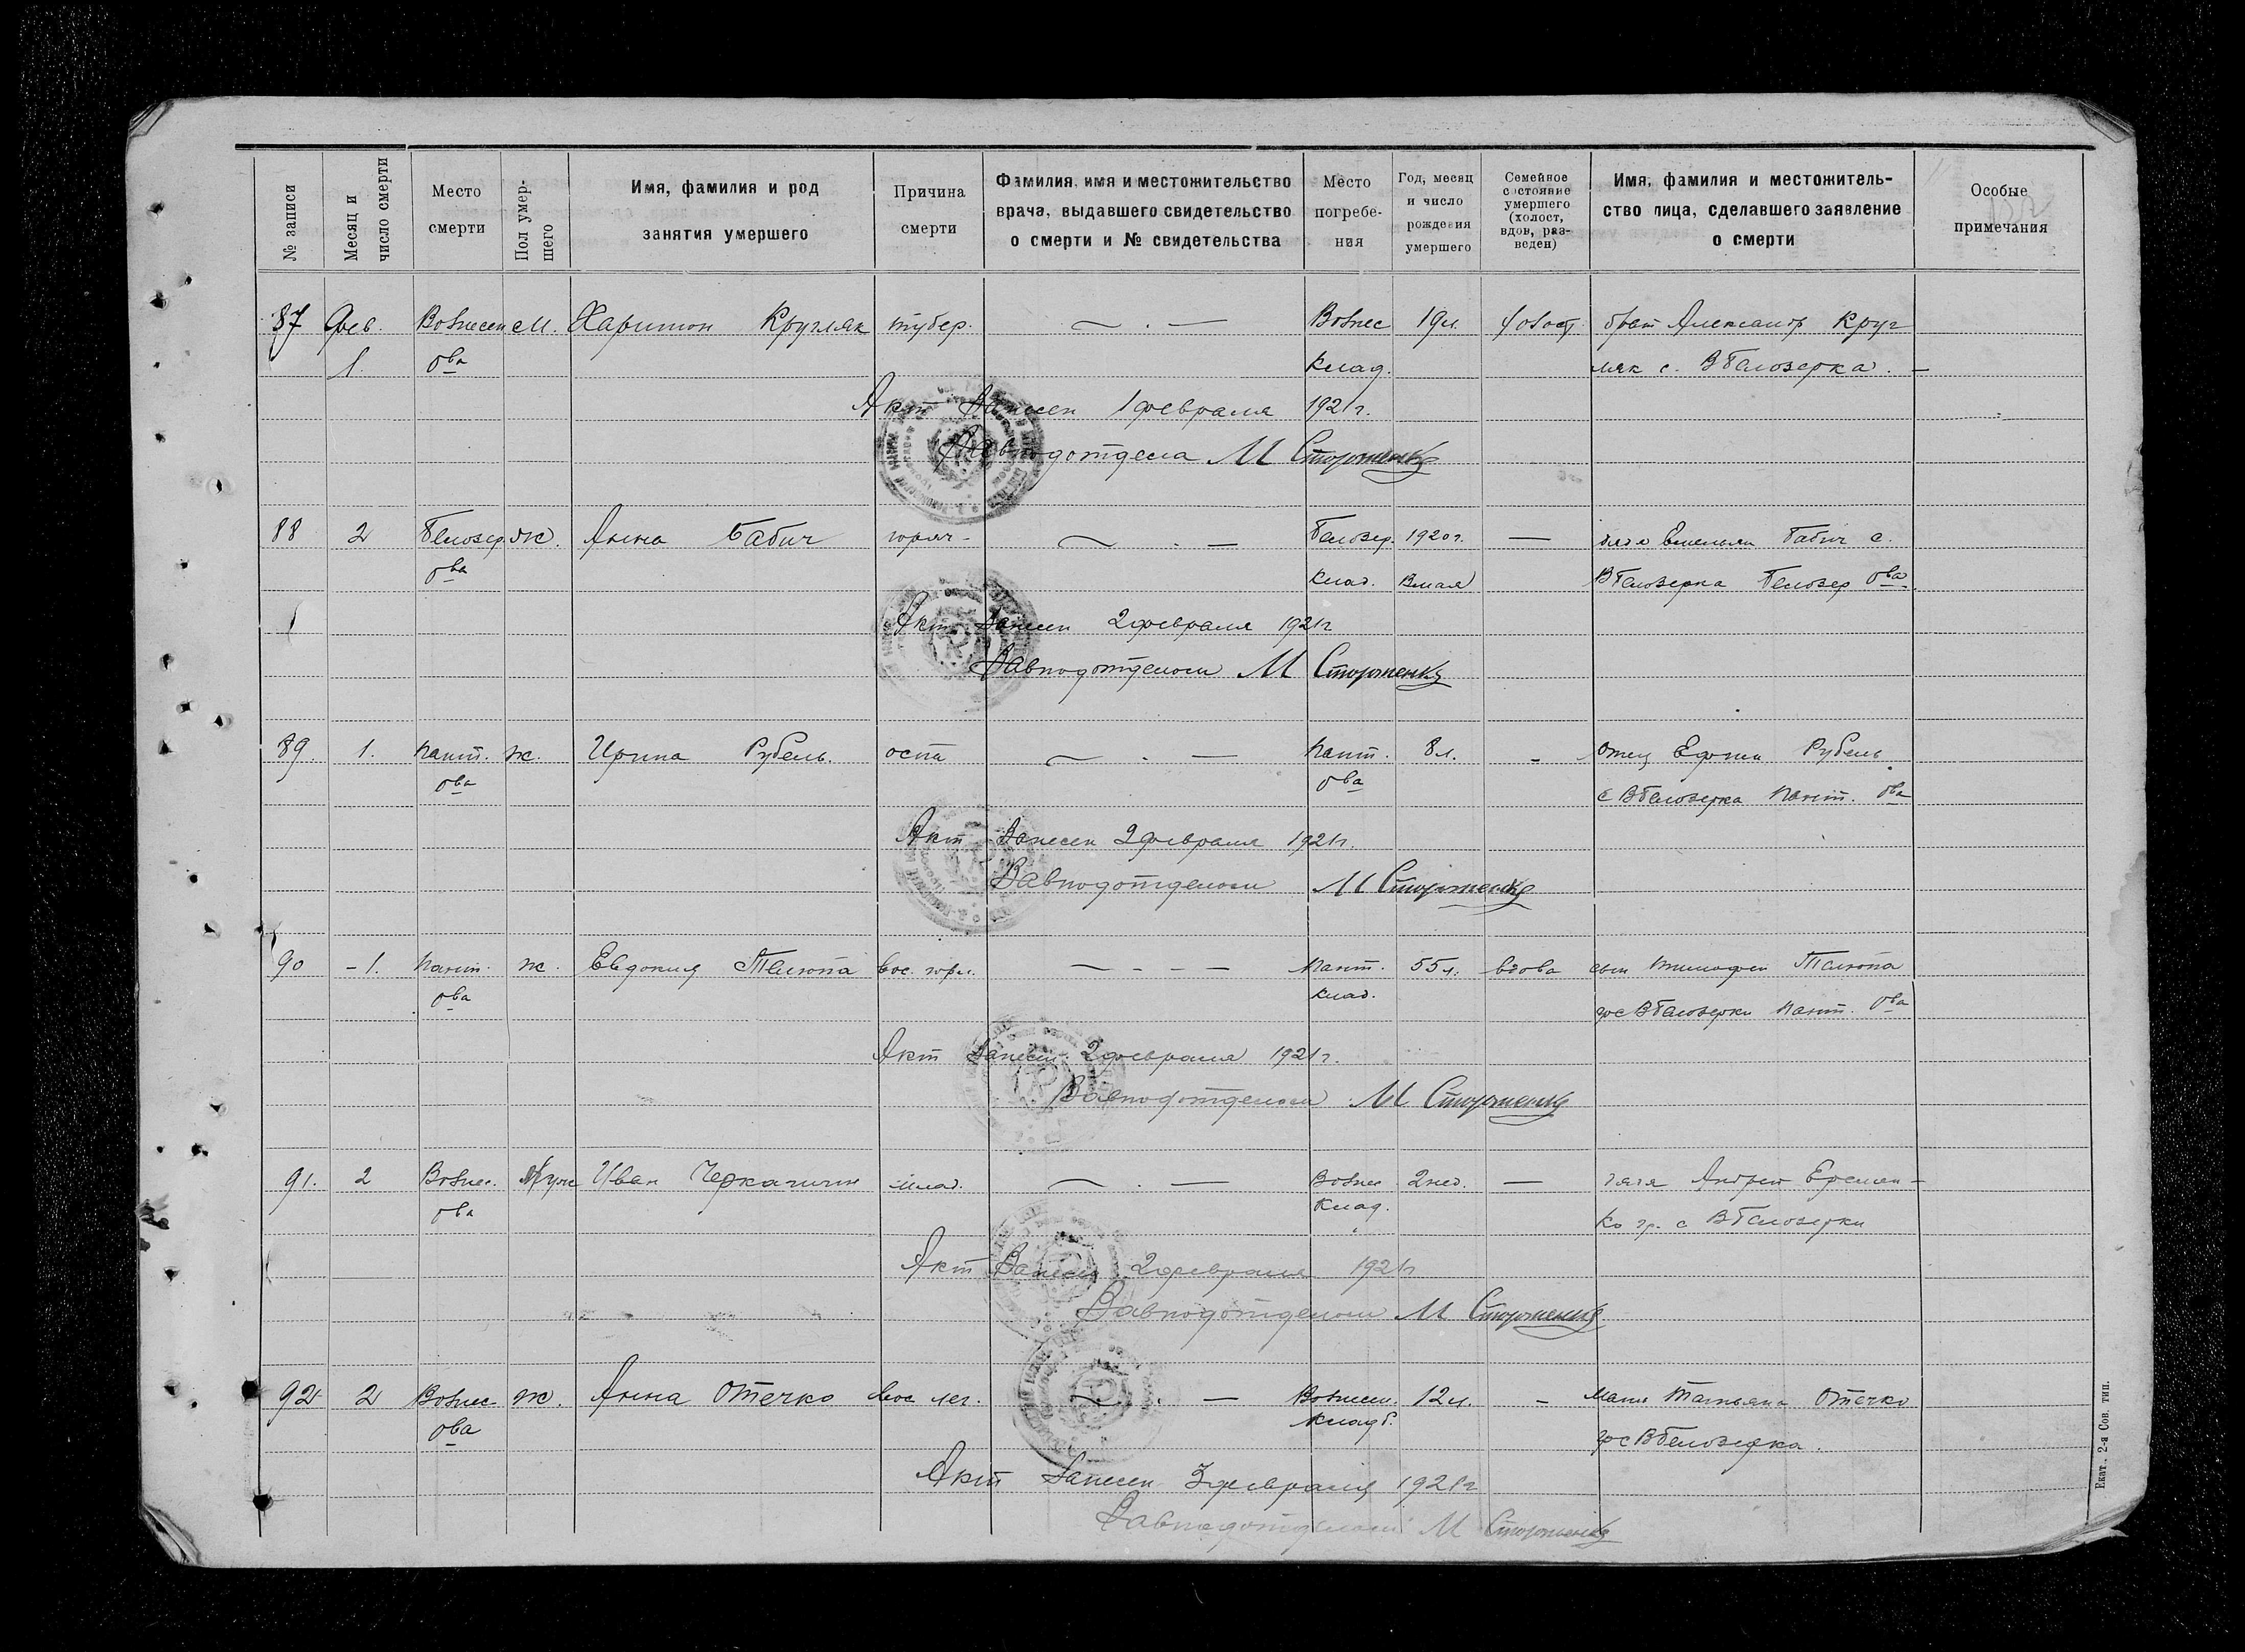 № записи
Месяц и число смерти
Место смерти
Пол умершего
Имя, фамилия и род занятия умершего
Причина смерти
Фамилия, имя и местожительство врача, выдавшего свидетельство о смерти и № свидетельства
Место погребения
Год, месяц и число рождения умершего
Семейное состояние умершего (холост, вдов, разведен)
Имя, фамилия и местожительство лица, сделавшего заявление о смерти
Особые примечания
87 Фев. Вознесен М. Харитон Кругляк тубер. — . — Вознес 19 л. холост брат Александр Круг
1. ова клад. ляк с. В Белозерка. —
Акт Занесен 1 февраля 1921 г.
Завподотдела М Стороженко
88 2 Белозер ж. Анна Бабич горяч — . — Белозер. 1920 г. — дядя Емельян Бабич с.
ова клад. 3 мая В Белозерка Белозер ова
Акт Занесен 2 февраля 1921 г
Завподотделом М Стороженко
89. 1. Пант. ж. Ирина Рубель. оспа — . — Пант. 8 л. - отец Ефим Рубель
ова ова с В Белозерка Пант. ова
Акт Занесен 2 февраля 1921 г.
Завподотделом М Стороженко
90 - 1. Пант. ж. Евдокия Телюпа вос. горл. — - - — Пант. 55 л. вдова сын Тимофей Телюпа
ова клад. гр с В Белозерки Пант. ова
Акт Занесен 2 февраля 1921 г.
Завподотделом М Стороженко
91. 2 Вознес. Муж Иван млад. — . — Вознес 2 нед. — дядя Андрей Еремен-
ова клад. ко гр. с В Белозерки
Акт Занесен 2 февраля 1921 г
Завподотделом М Стороженко
92 2 Вознес ж. Анна Отечко вос лег. — . — Вознесен. 12 л. - мать Татьяна Отечко
ова кладб. гр с В Белозерка.
Акт Занесен 3 февраля 1921 г
Завподотделом М Стороженко
Екат., 2-я Сов. тип.